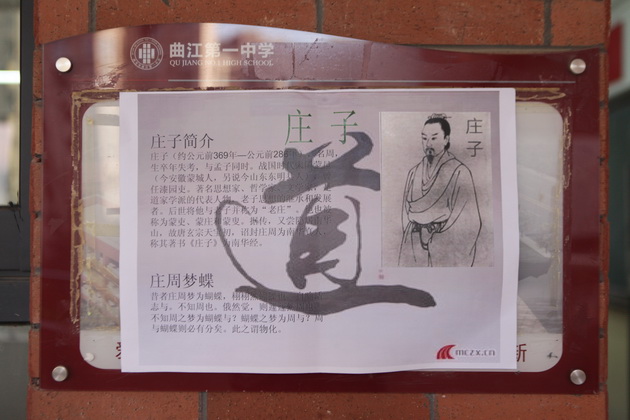 曲江第一中学
QU JIANG NO.1 HIGH SCHOOL
庄子
庄子
庄子简介
庄子（约公元前369年—公元前286年）名周，
生卒年失考，与孟子同时。战国时
（今安徽蒙城人，另说今山东东明
任漆园吏。著名思想家、哲学
道家学派的代表人物，老子思想的继承和发展
者。后世将他与老子并称为“老庄”。他也被
称为蒙吏、蒙庄和蒙叟。据传，又尝隐居
山，故唐玄宗天宝初，诏封庄周为南华
称其著书《庄子》为南华经。
道
庄周梦蝶
昔者庄周梦为蝴蝶，栩栩
志与。不知周也。俄然觉，则
不知周之梦为蝴蝶与？蝴蝶之梦为周与？周
与蝴蝶则必有分矣。此之谓物化。
mczx.cn
新